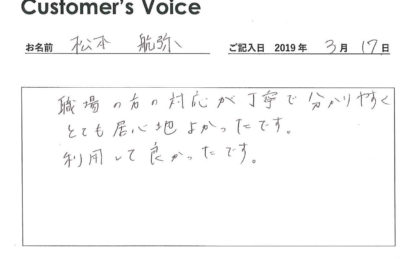 Customer's Voice
お名前 松本 航弥 ご記入日 2019年 3月 17日
職場の方の対応が丁寧で分かりやすく
とても居心地よかったです。
利用して良かったです。